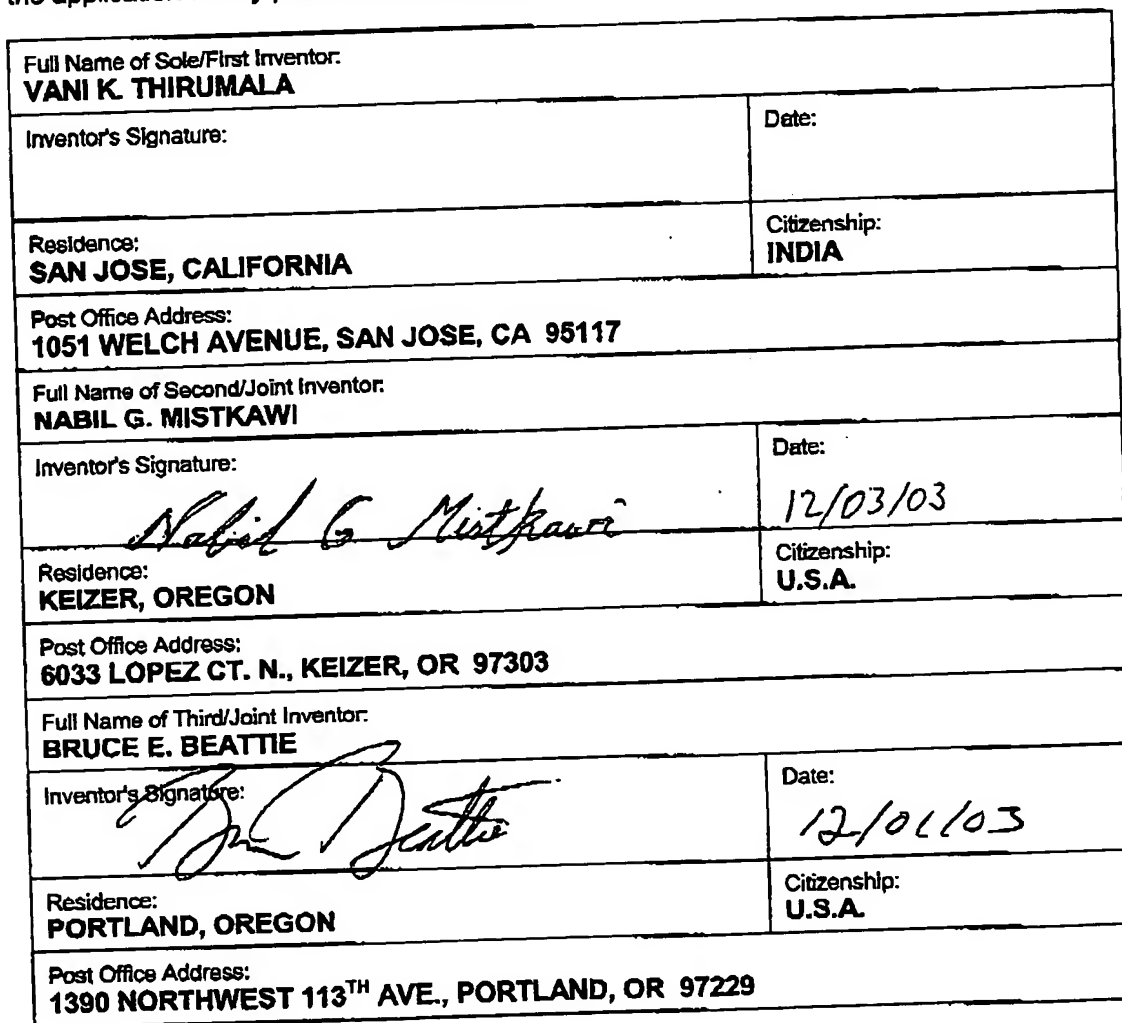 Full Name of Sole/First Inventor:
VANI K. THIRUMALA
Inventor's Signature:
Date:
Residence:
SAN JOSE, CALIFORNIA
Citizenship:
INDIA
Post Office Address:
1051 WELCH AVENUE, SAN JOSE, CA 95117
Full Name of Second/Joint Inventor:
NABIL G. MISTKAWI
Inventor's Signature:
Nabil G Mistkawi
Date:
12/03/03
Residence:
KEIZER, OREGON
Citizenship:
U.S.A.
Post Office Address:
6033 LOPEZ CT. N., KEIZER, OR 97303
Full Name of Third/Joint Inventor:
BRUCE E. BEATTIE
Inventor's Signature:
Beattie
Date:
12/01/03
Residence:
PORTLAND, OREGON
Citizenship:
U.S.A.
Post Office Address:
1390 NORTHWEST 113TH AVE., PORTLAND, OR 97229